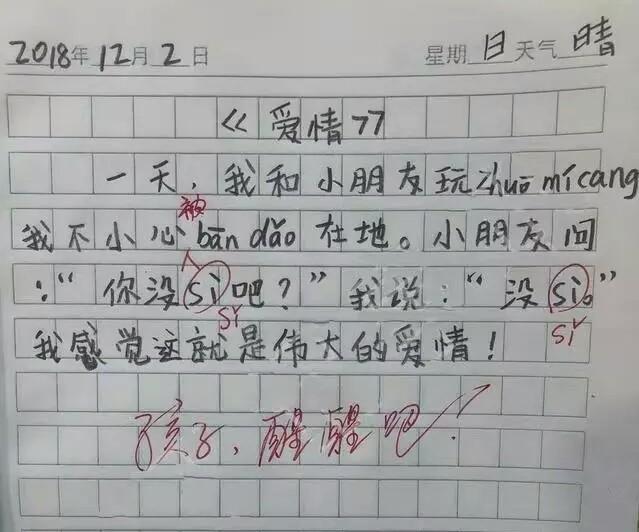 2018年12月2日 星期日天气晴
《爱情》
一天,我和小朋友玩zhuō mí cang
被
我不小心bān dǎo在地。小朋友问
:“你没sì吧?”我说:“没sì。”
sǐ sǐ
我感觉这就是伟大的爱情!
孩子,醒醒吧!